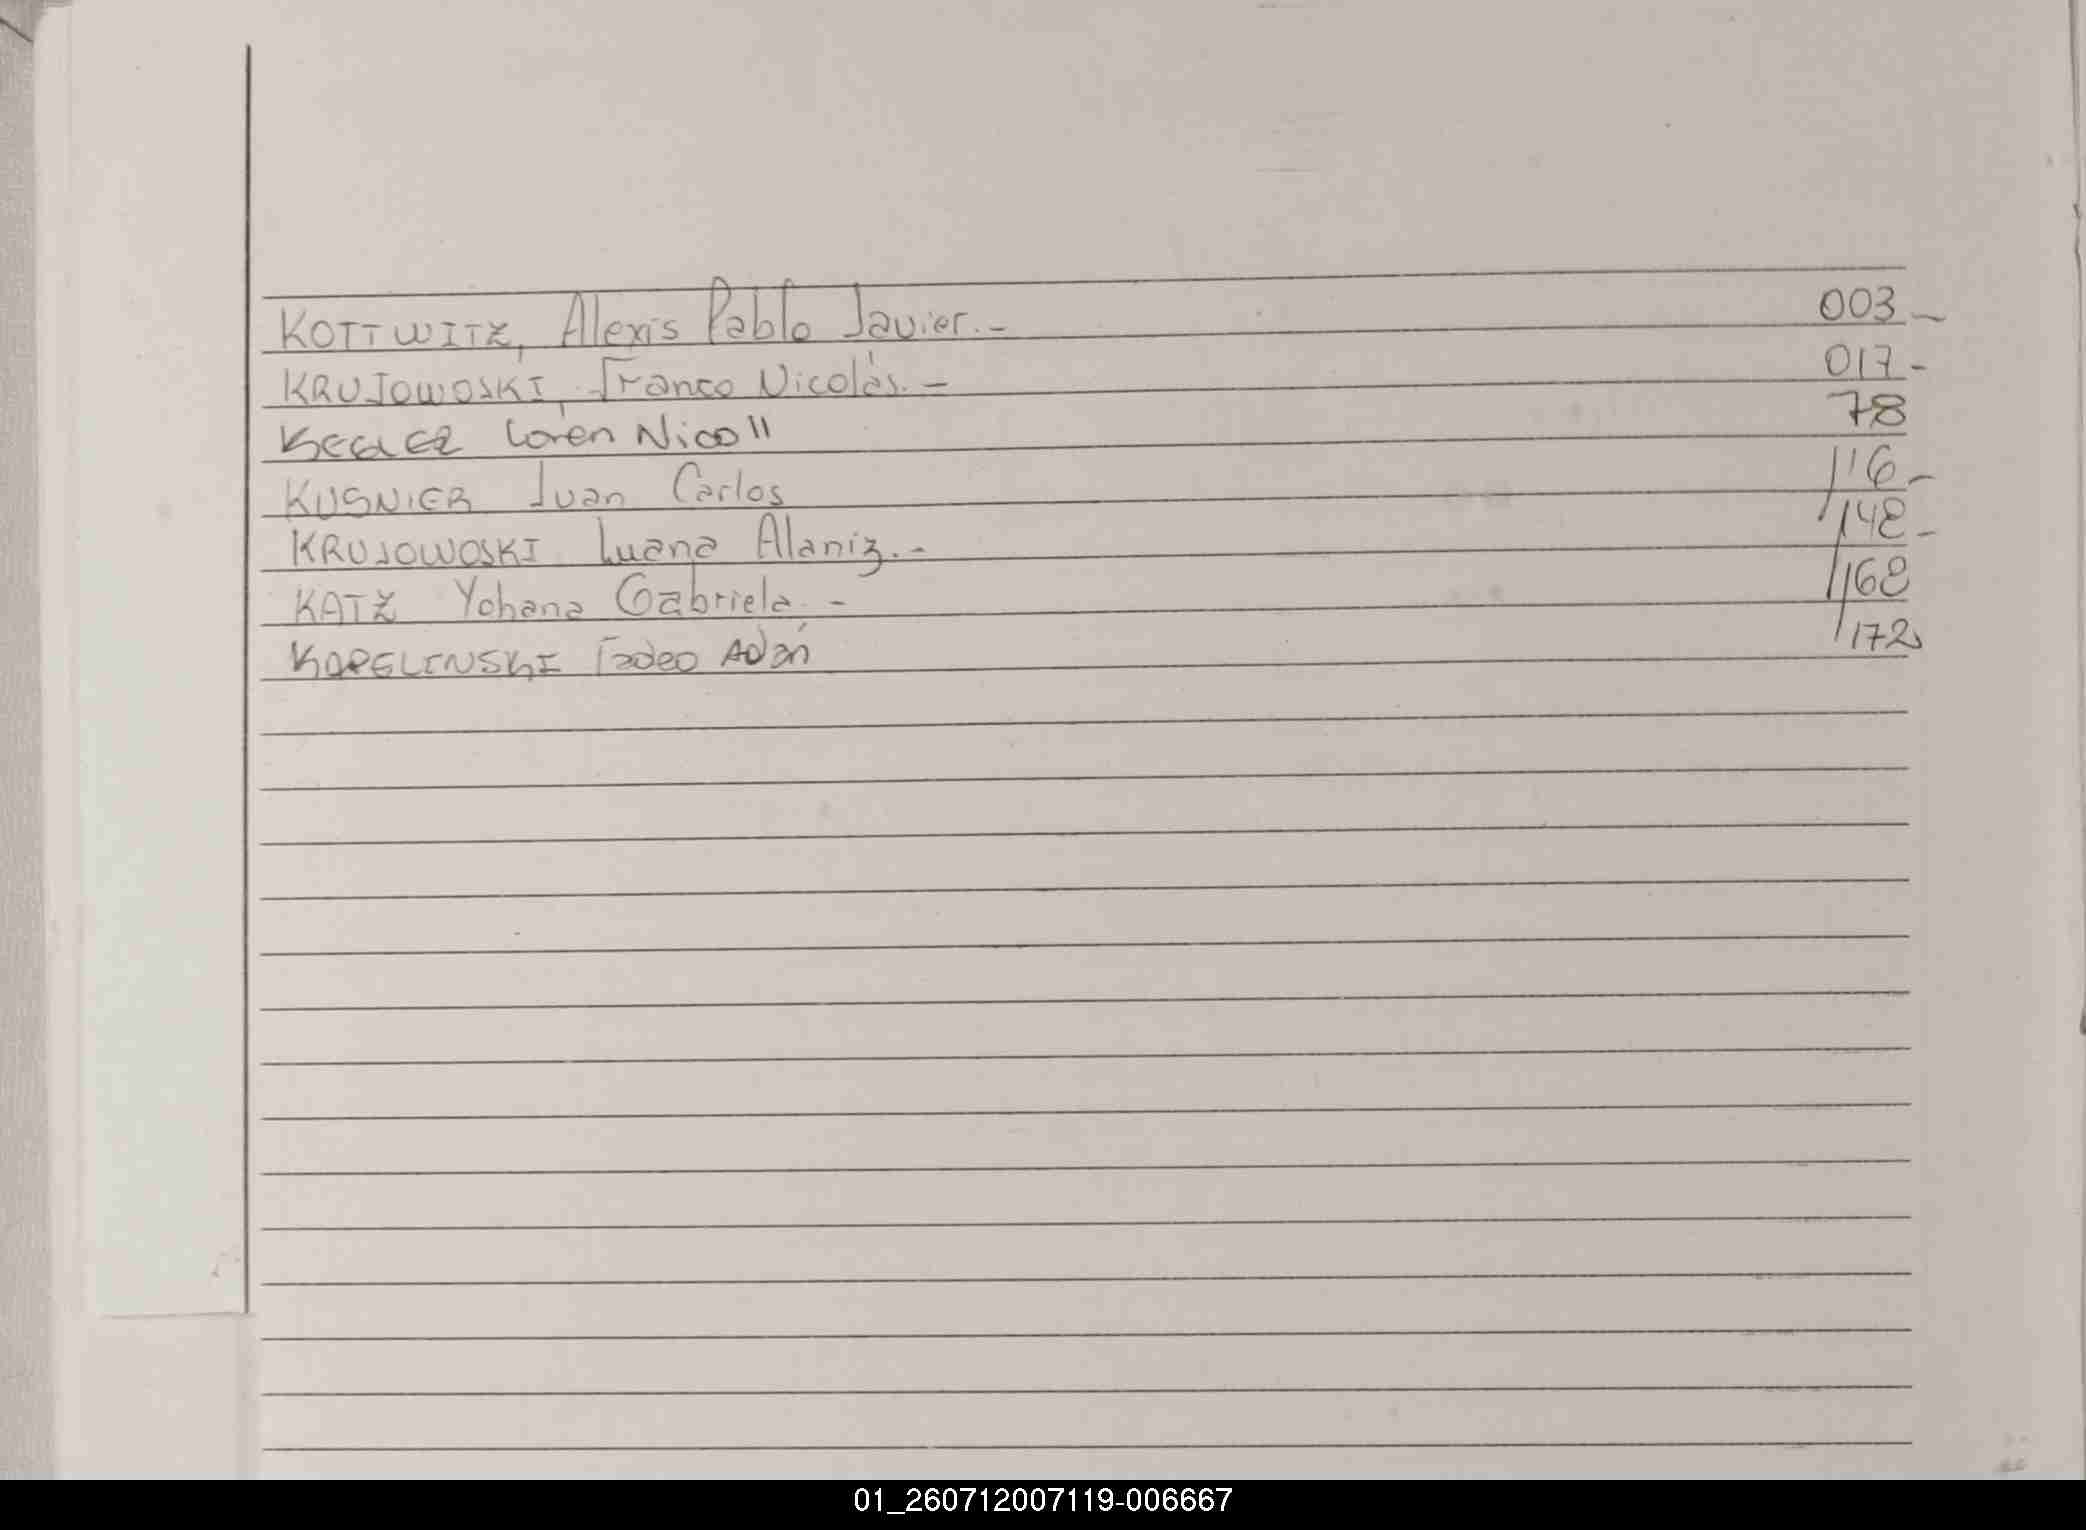 KOTTWITZ, Alexis Pablo Javier.- 003-
KRUJOWOSKI, Franco Nicolás.- 017-
KEGLER Loren Nicoll 78
KUSNIER Juan Carlos 116-
KRUJOWOSKI Luana Alaniz.- 148-
KATZ Yohana Gabriela.- 168
KOPELINSKI Tadeo Adán 172
01_260712007119-006667